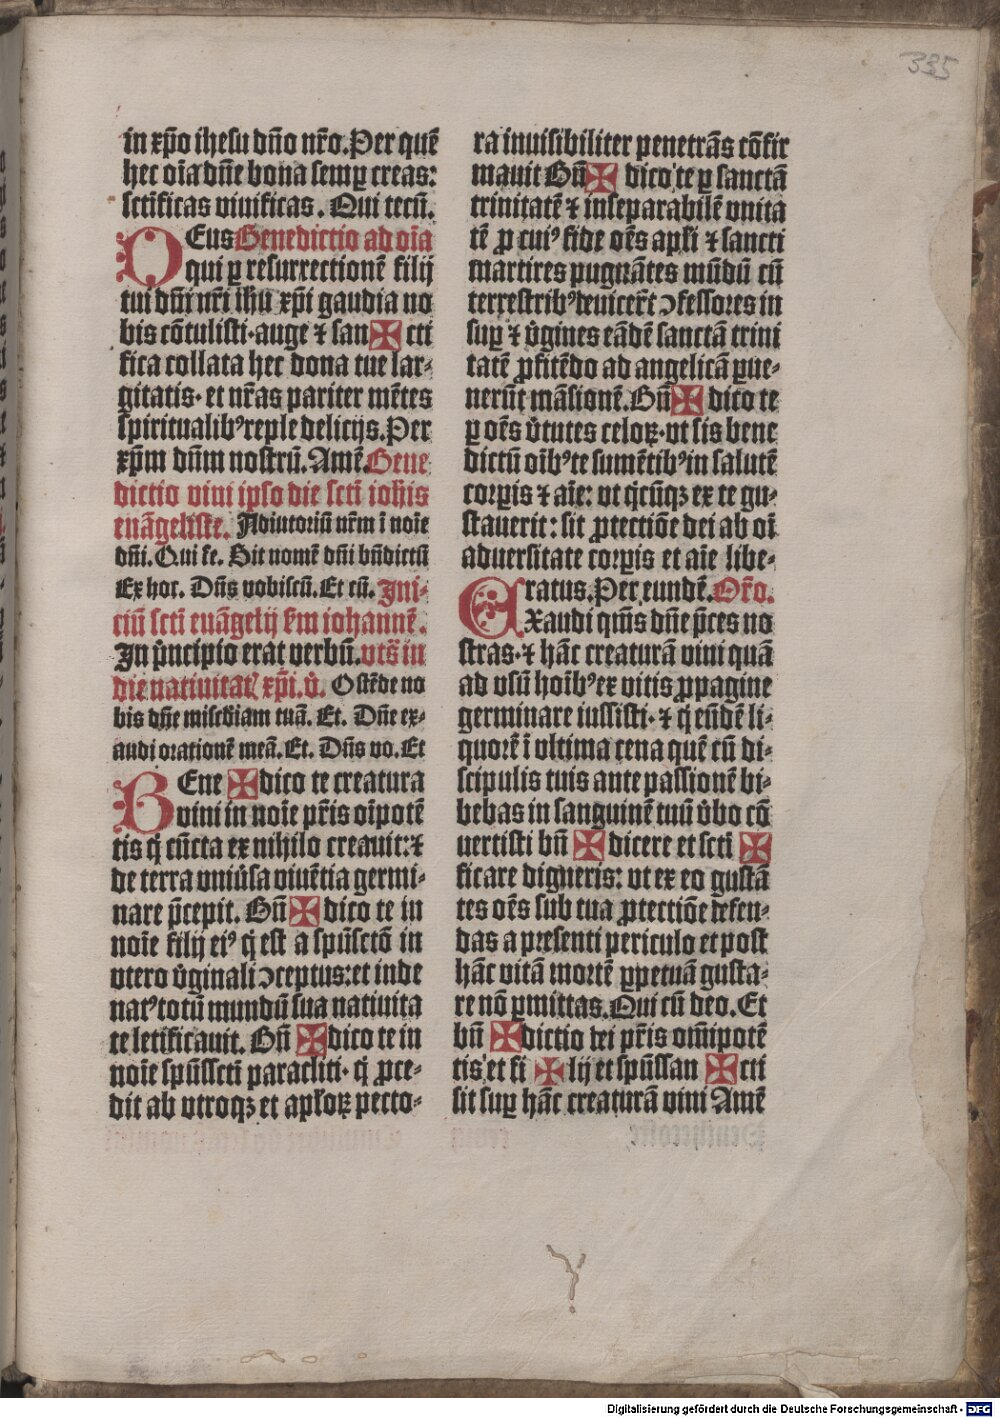 335
in xp̄o ihesu dn̄o nr̄o. Per quē
hec oīa dn̄e bona semꝑ creas:
sctīficas viuificas. Qui tecū.
DEus Benedictio ad oīa
qui ꝑ resurrectionē filij
tui dn̄i nr̄i ihū xp̄i gaudia no
bis cōtulisti·auge ⁊ san ✠ cti
fica collata hec dona tue lar-
gitatis· et nr̄as pariter mētes
spiritualibꝰ reple delicijs. Per
xp̄m dn̄m nostrū. Amē. Bene
dictio vini ipso die sctī iohis
euāgeliste. Adiutoriū nr̄m ī noīe
dn̄i. Qui fe. Sit nomē dn̄i bn̄dictū
Ex hoc. Dn̄s vobiscū. Et cū. Ini-
ciū sctī euāgelij s̄m iohannē.
In p̄ncipio erat verbū. vts̄ in
die natiuitat xp̄i. v̄. Ostēde no
bis dn̄e miscd̄iam tuā. Et. Dn̄e ex-
audi orationē meā. Et. Dn̄s vo. Et
BEne ✠ dico te creatura
vini in noīe pr̄is oīpotē
tis q̄ cūcta ex nihilo creauit: ⁊
de terra vniūsa viuētia germi-
nare p̄cepit. Bn̄ ✠ dico te in
noīe filij eiꝰ q̄ est a spūsctō in
vtero v̄ginali ɔceptus: et inde
natꝰ totū mundū sua natiuita
te letificauit. Bn̄ ✠ dico te in
noīe spūssctī paracliti· q̄ ꝓce-
dit ab vtroqꝫ et apl̄oꝝ pecto-
ra inuisibiliter penetrās cōfir
mauit Bn̄ ✠ dico te ꝑ sanctā
trinitatē ⁊ inseparabilē vnita
tē ꝓ cuiꝰ fide oēs apl̄i ⁊ sancti
martires pugnātes mūdū cū
terrestribꝰ deuicer̄t ɔfessores in
suꝑ ⁊ v̄gines eādē sanctā trini
tatē ꝓfitēdo ad angelicā ꝑue-
nerūt māsionē. Bn̄ ✠ dico te
ꝑ oēs v̄tutes celoꝝ· vt sis bene
dictū oībꝰ te sumētibꝰ in salutē
corꝑis ⁊ aīe: vt q̄cūqꝫ ex te gu-
stauerit: sit ꝓtectiōe dei ab oī
aduersitate corꝑis et aīe libe-
ratus. Per eundē. Or̄o.
EXaudi qm̄s dn̄e p̄ces no
stras· ⁊ hāc creaturā vini quā
ad vsū hoībꝰ ex vitis ꝓpagine
germinare iussisti· ⁊ q̄ eūdē li-
quorē ī vltima cena quē cū di-
scipulis tuis ante passionē bi-
bebas in sanguinē tuū v̄bo cō
uertisti bn̄ ✠ dicere et sctī ✠
ficare digneris: vt ex eo gustā
tes oēs sub tua ꝓtectiōe defen-
das a presenti periculo et post
hāc vitā mortē ꝑpetuā gusta-
re nō ꝑmittas. Qui cū deo. Et
bn̄ ✠ dictio dei pr̄is om̄ipotē
tis et fi ✠ lij et spūssan ✠ cti
sit suꝑ hāc creaturā vini Amē
Digitalisierung gefördert durch die Deutsche Forschungsgemeinschaft - DFG